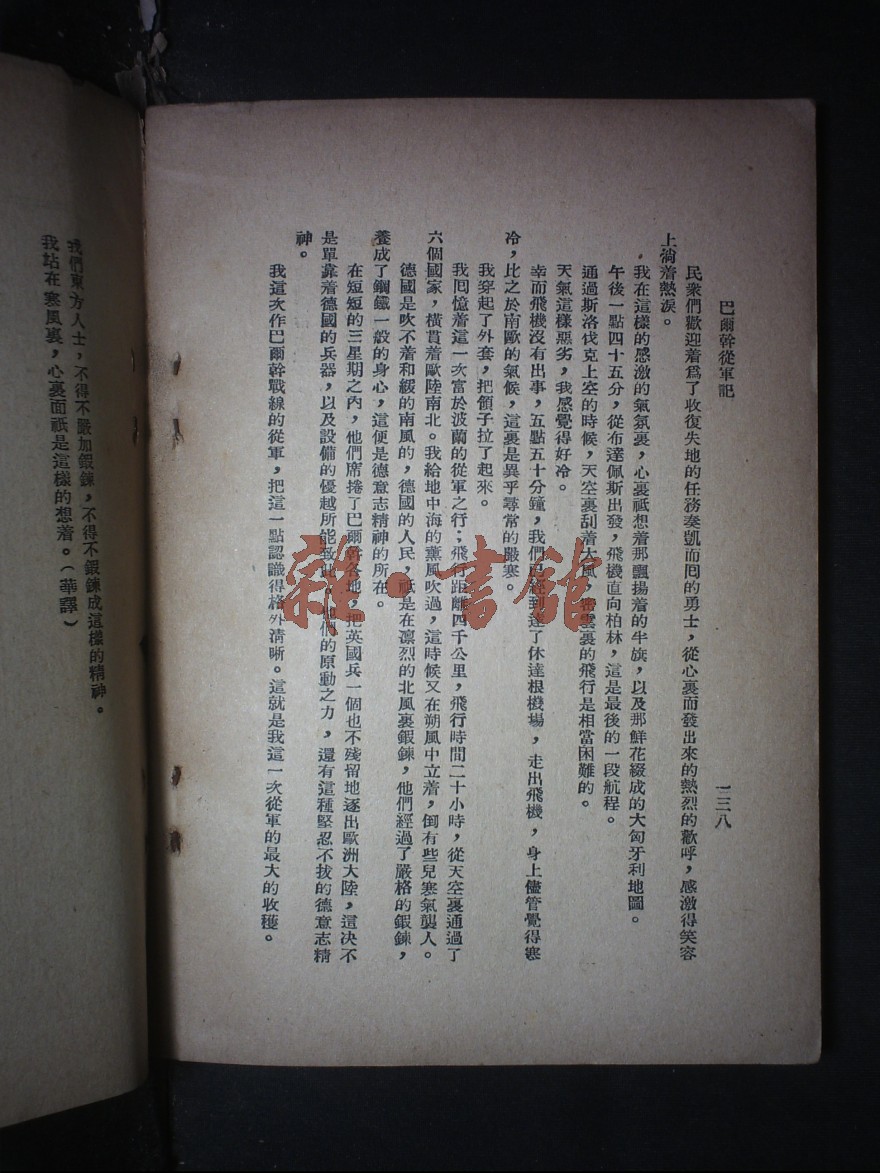 巴爾幹從軍記
一三八
民衆們歡迎着爲了收復失地的任務奏凱而囘的勇士，從心裏而發出來的熱烈的歡呼，感激得笑容
上淌着熱淚。
我在這樣的感激的氣氛裏，心裏祇想着那飄揚着的牛旗，以及那鮮花綴成的大匈牙利地圖。
午後一點四十五分，從布達佩斯出發，飛機直向柏林，這是最後的一段航程。
通過斯洛伐克上空的時候，天空裏刮着大風，密雲裏的飛行是相當困難的。
天氣這樣惡劣，我感覺得好冷。
幸而飛機沒有出事，五點五十分鐘，我們已經到達了休達根機場，走出飛機，身上儘管覺得寒
冷，比之於南歐的氣候，這裏是異乎尋常的嚴寒。
我穿起了外套，把領子拉了起來。
我囘憶着這一次富於波蘭的從軍之行；飛行距離四千公里，飛行時間二十小時，從天空裏通過了
六個國家，橫貫着歐陸南北。我給地中海的薰風吹過，這時候又在朔風中立着，倒有些兒寒氣襲人。
德國是吹不着和緩的南風的，德國的人民，祇是在凛烈的北風裏鍛鍊，他們經過了嚴格的鍛鍊，
養成了鋼鐵一般的身心，這便是德意志精神的所在。
在短短的三星期之內，他們席捲了巴爾幹各地，把英國兵一個也不殘留地逐出歐洲大陸，這決不
是單靠着德國的兵器，以及設備的優越所能致此，他們的原動之力，還有這種堅忍不拔的德意志精
神。
我這次作巴爾幹戰線的從軍，把這一點認識得格外清晰。這就是我這一次從軍的最大的收穫。
我們東方人士，不得不嚴加鍛鍊，不得不鍛鍊成這樣的精神。
我站在寒風裏，心裏面祇是這樣的想着。（華譯）
雜·書館